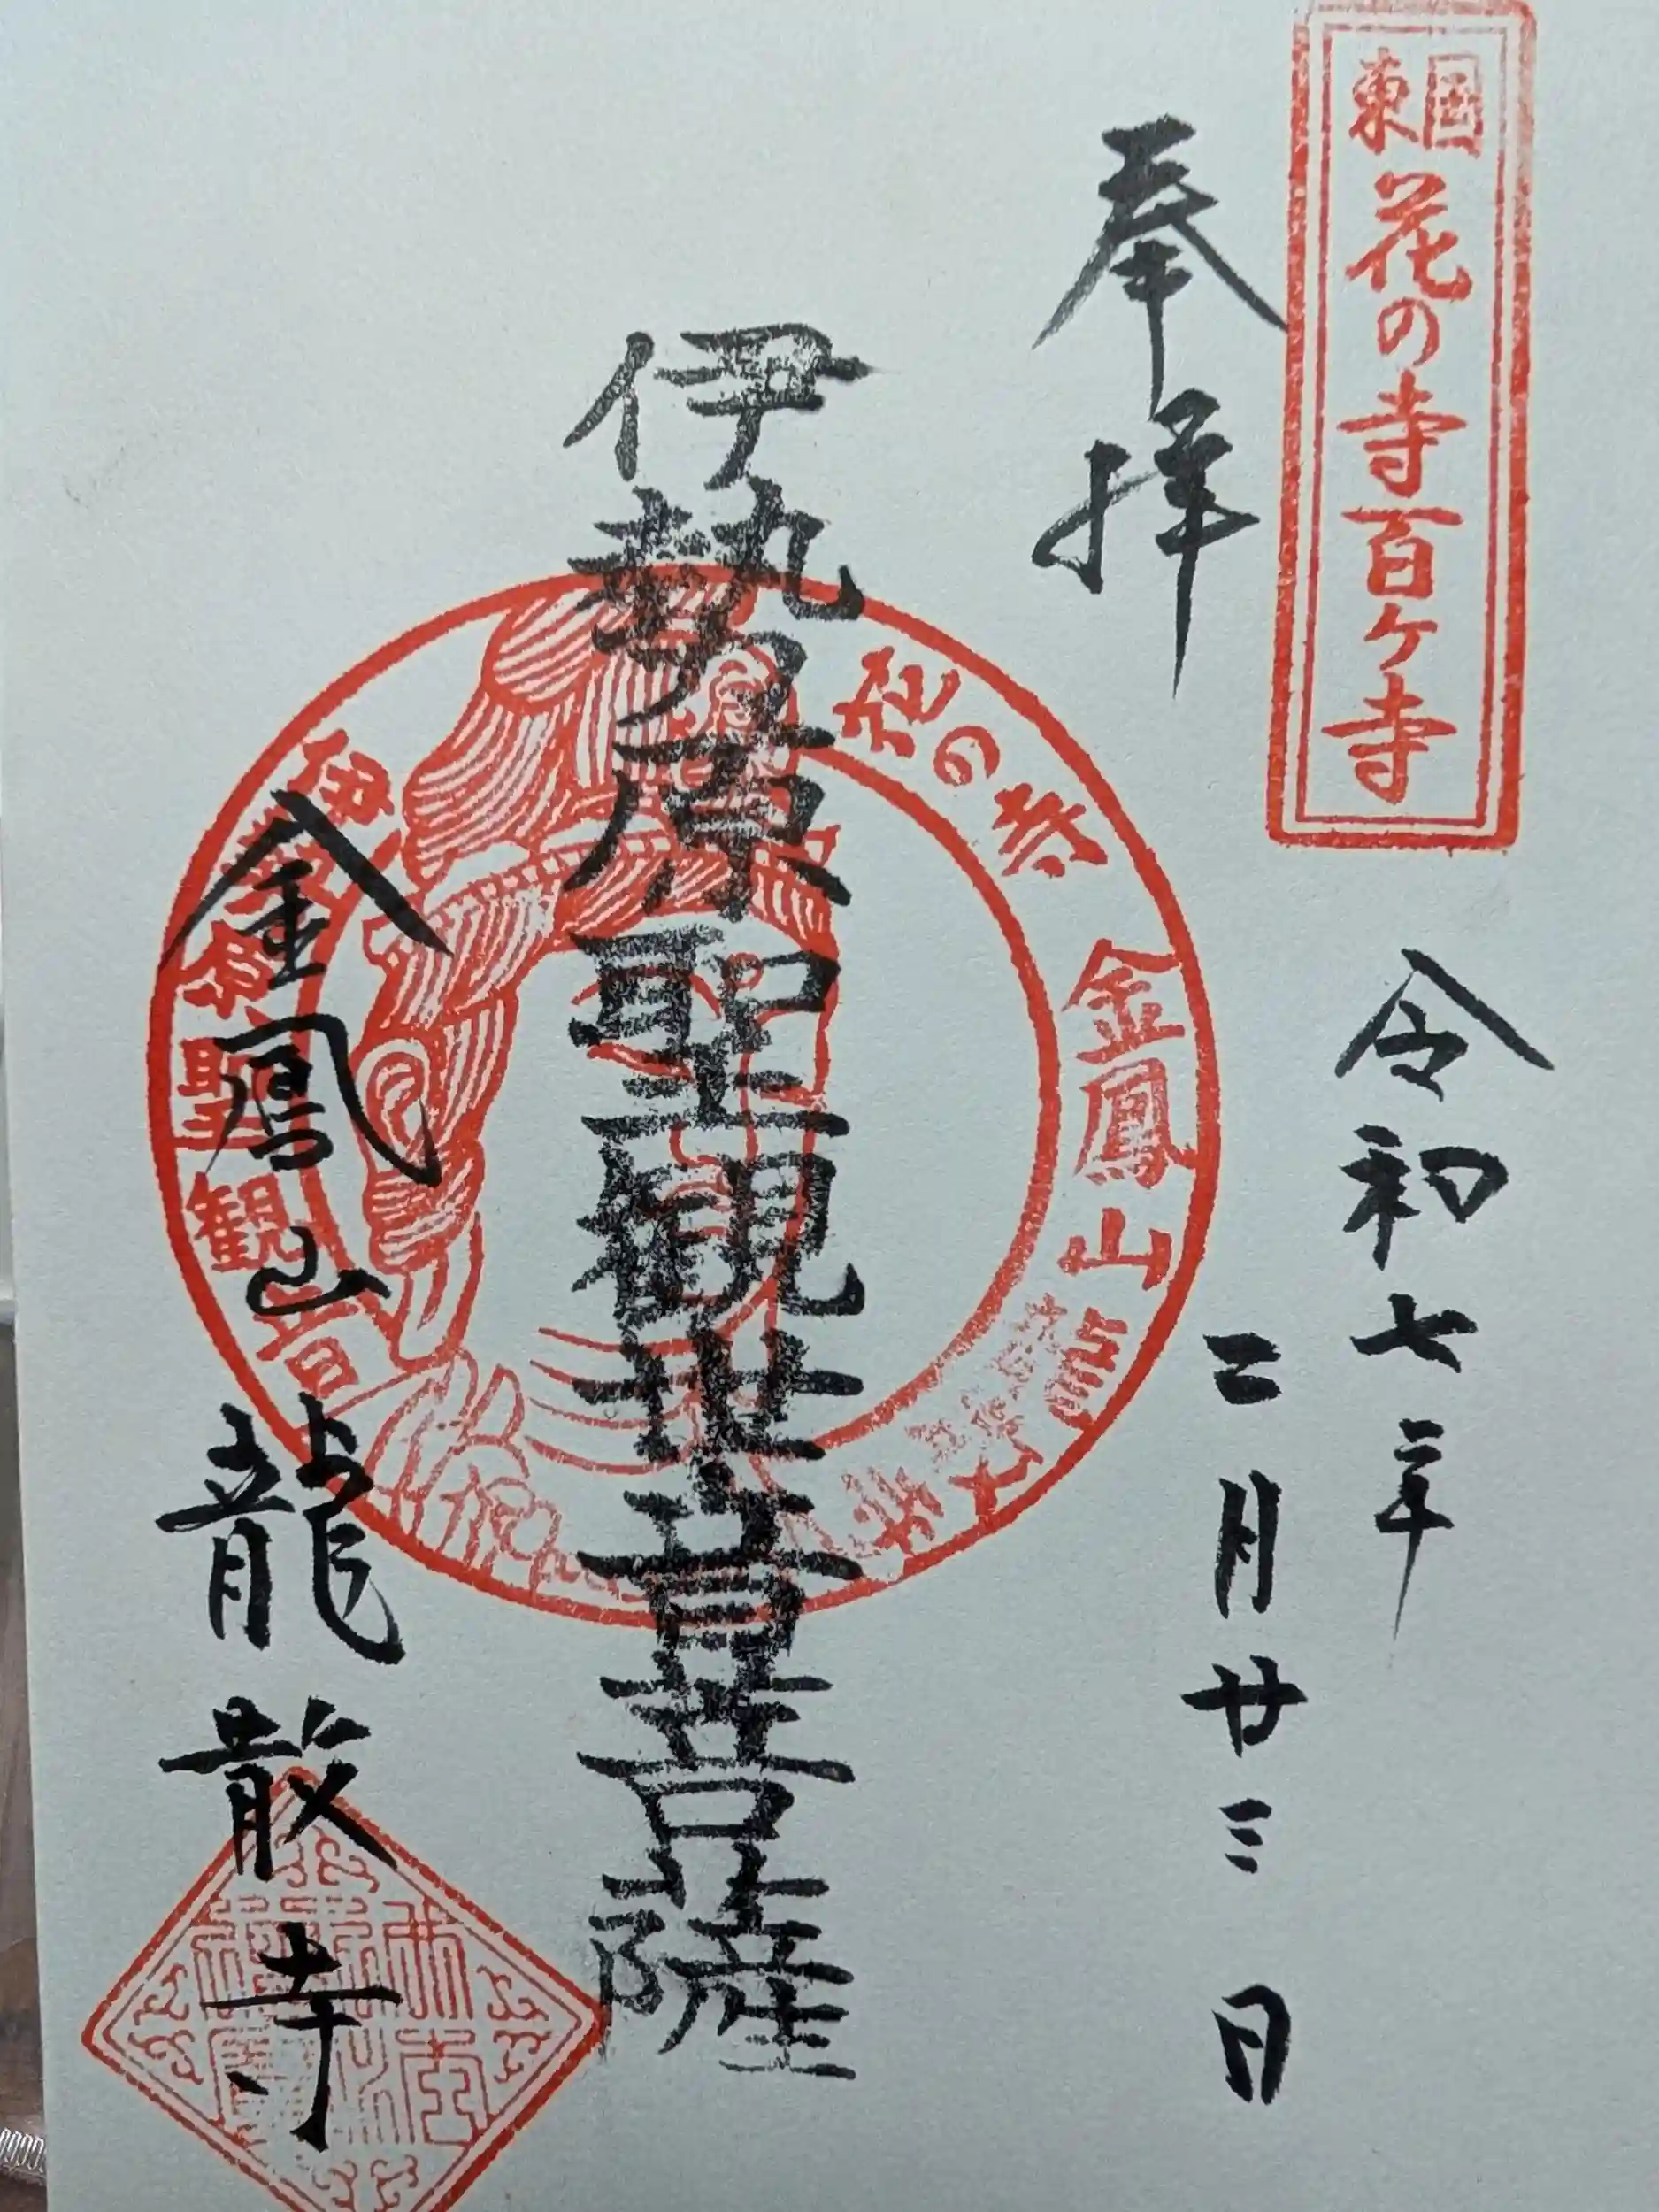 東国花の寺百ヶ寺
奉拝
令和七年
二月廿三日
伊勢原聖観世音菩薩
花の寺 金鳳山 龍散寺
伊勢原聖観音
金鳳山 龍散寺